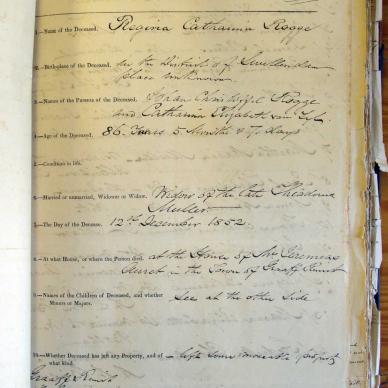 1.—Name of the Deceased, Regina Catharina Rogge
2.—Birthplace of the Deceased, In the District of Swellendam
place unknown
3.—Names of the Parents of the Deceased, Johan Christoffel Rogge
and Catharina Elizabeth van
4.—Age of the Deceased, 86 Years 5 Months & 7 days
5.—Condition in life.
6.—Married or unmarried, Widower or Widow. Widow of the late
Muller
7.—The Day of the Decease, 12th December 1852.
8.—At what House, or where the Person died, at the House of Mr Jeremias
Auret in the Town of Graaff Reinet
9.—Names of the Children of Deceased, and whether
Minors or Majors. See at the other Side
10.—Whether Deceased has left any Property, and of
what kind. left some moveable property
Graaff Reinet